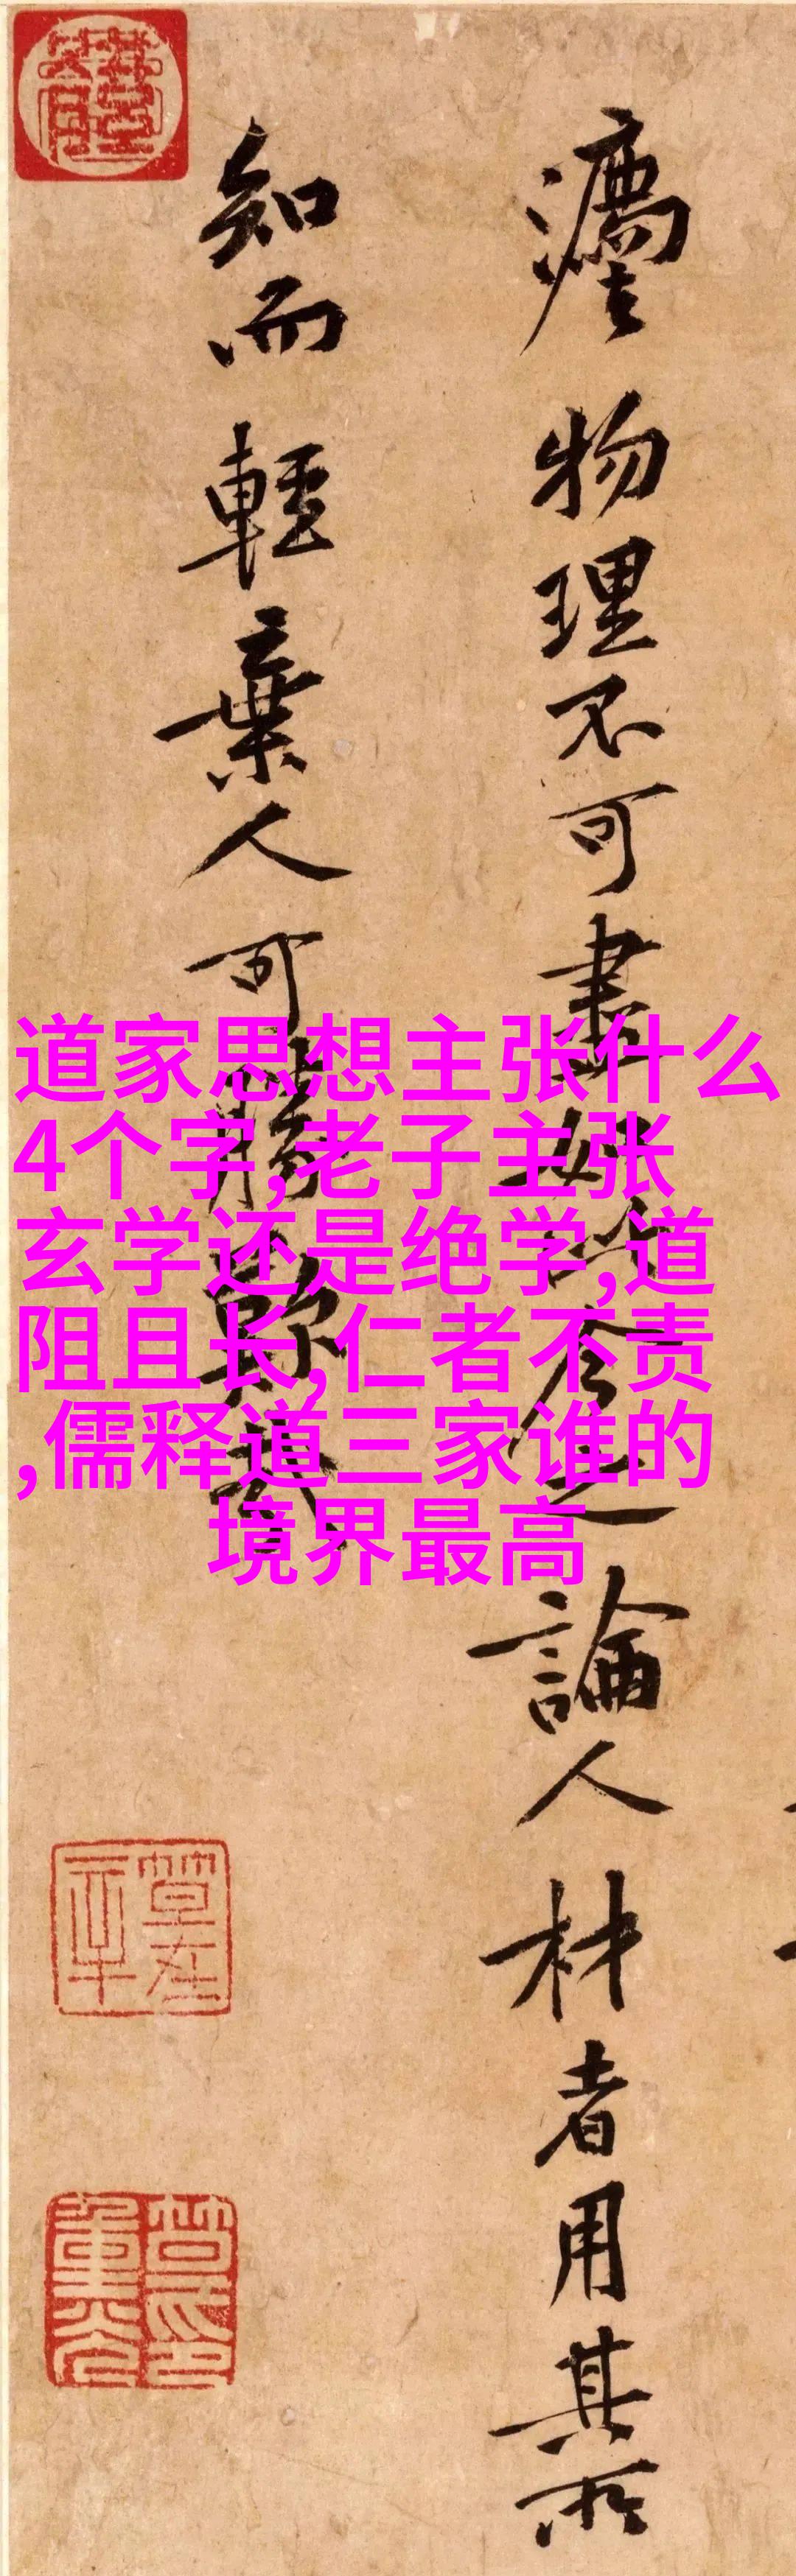 灋物理不可盡如此今之論人材者用其所
知而輕棄人可勝歎哉
道家思想主张什么
4个字,老子主张
玄学还是绝学,道
阻且长,仁者不责
,儒释道三家谁的
境界最高